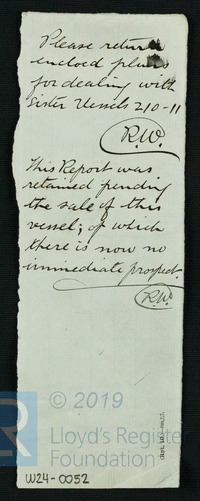 Please return
encloed plans
for dealing with
Sister Vessels 210-11
R.W.
This Report was
retained pending
the sale of this
vessel; of which
there is now no
immediate prospect
R.W.
© 2019
Lloyd's Register
Foundation
W24-0052